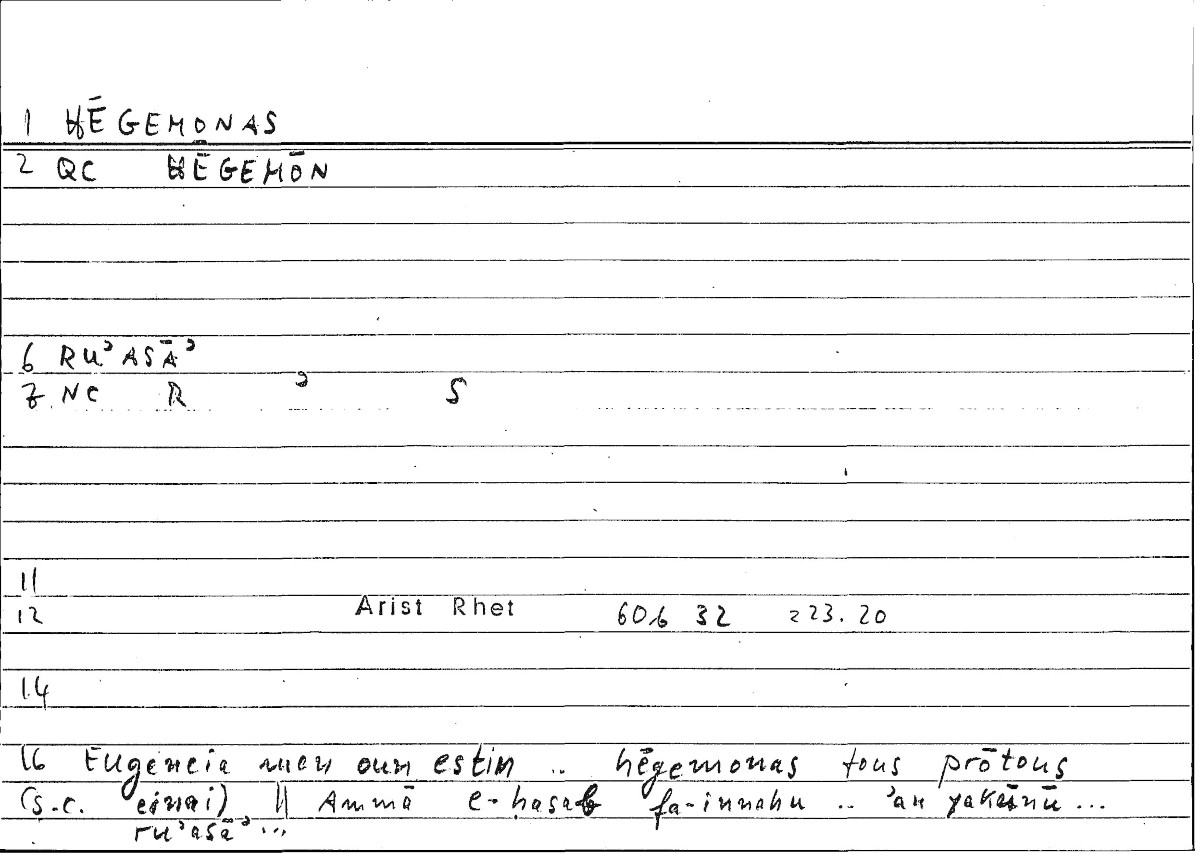 1 HĒGEMONAS
2 QC HĒGEMŌN
6 RUʾASĀʾ
7 NC R ʾ S
11
12 Arist Rhet 60b 32 223.20
14
16 Eugeneia men oun estin .. hēgemonas tous prōtous
(s.c. einai) || Ammā e-ḥasab fa-innahu .. ʾan yakūnū ...
ruʾasāʾ ...